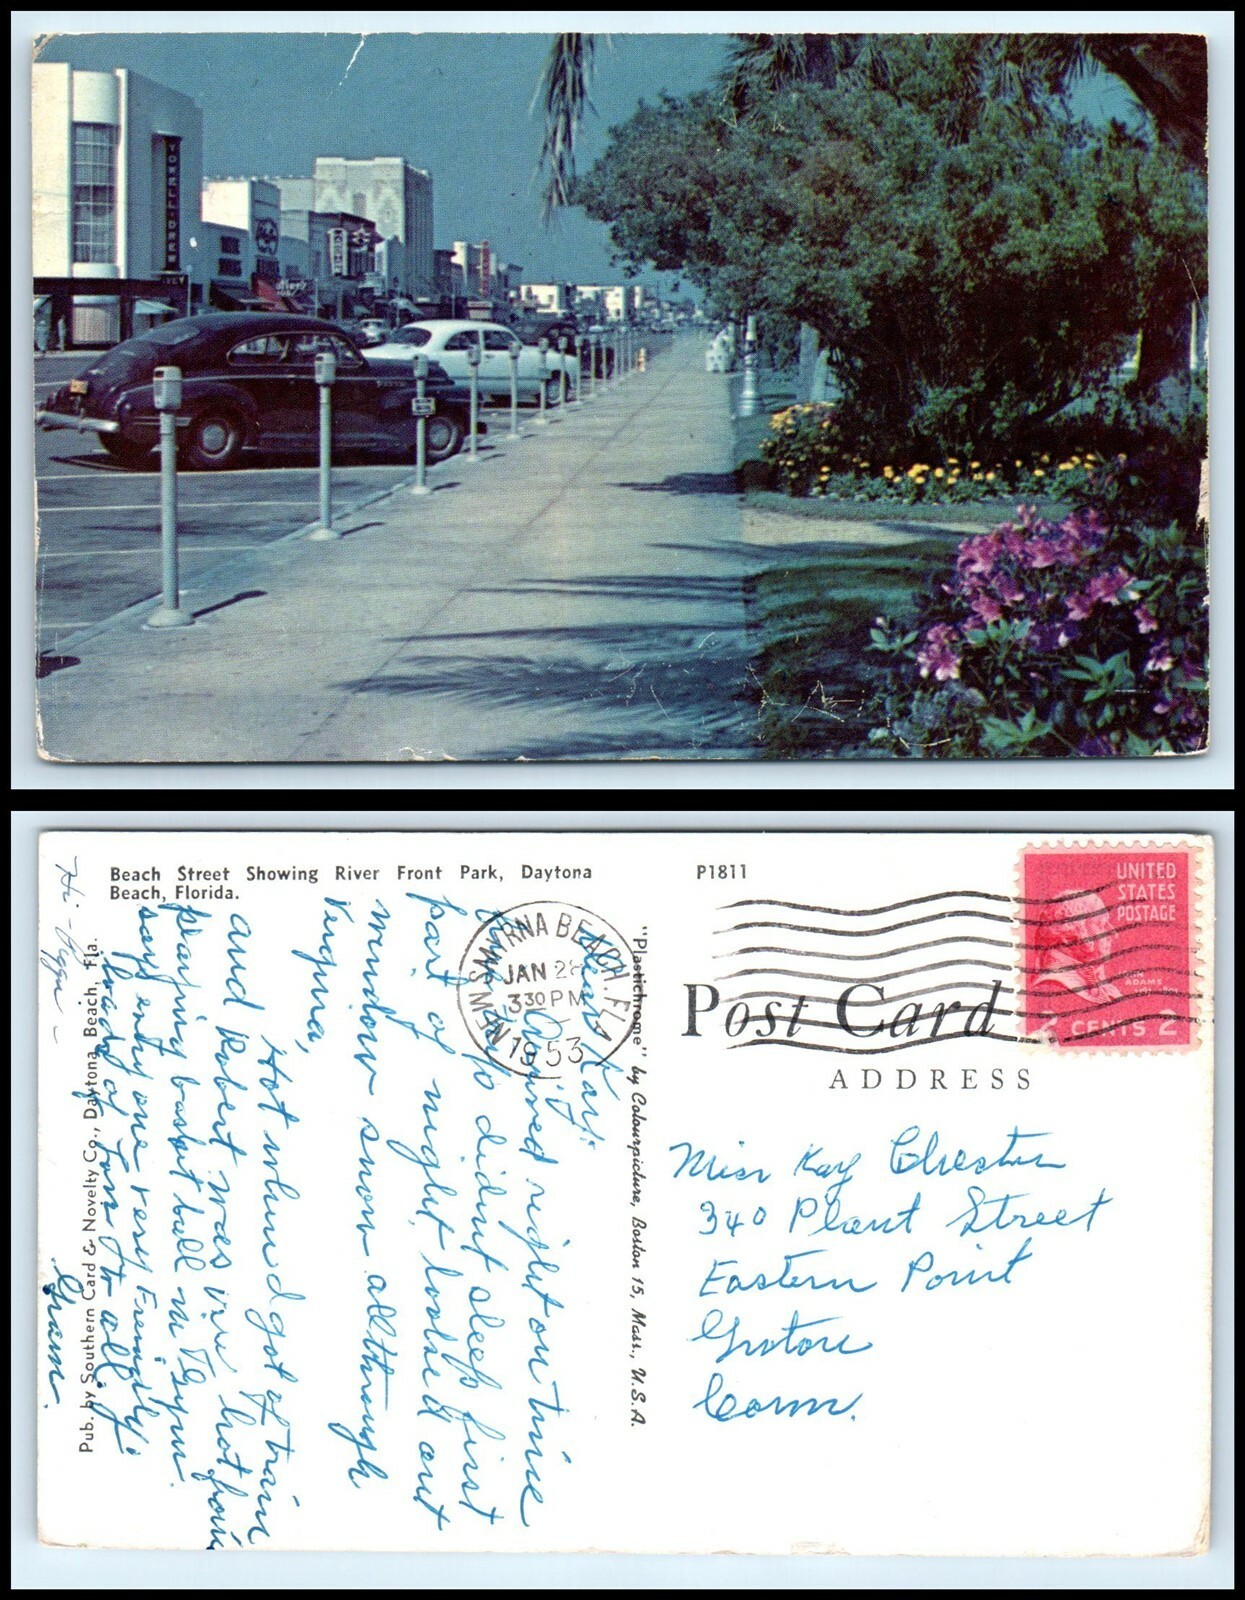 YOWELL·DREW
IVEY
Beach Street Showing River Front Park, Daytona
Beach, Florida.
P1811
UNITED
STATES
POSTAGE
JOHN
ADAMS
2 CENTS 2
NEW SMYRNA BEACH, FLA.
JAN 28
3 30 PM
1953
Post Card
ADDRESS
"Plastichrome" by Colourpicture, Boston 15, Mass., U.S.A.
Pub. by Southern Card & Novelty Co., Daytona Beach, Fla.
Miss Kay Chester
340 Plant Street
Eastern Point
Groton
Conn.
Dear Kay:
Arrived right on time
didnt sleep first
part of night, looked out
window snow all through
Virginia,
Hot when I got of train
and Robert was in hot from
playing basket ball in Gym.
says every one very Friendly.
loads of love to all
Gram.
Hi -